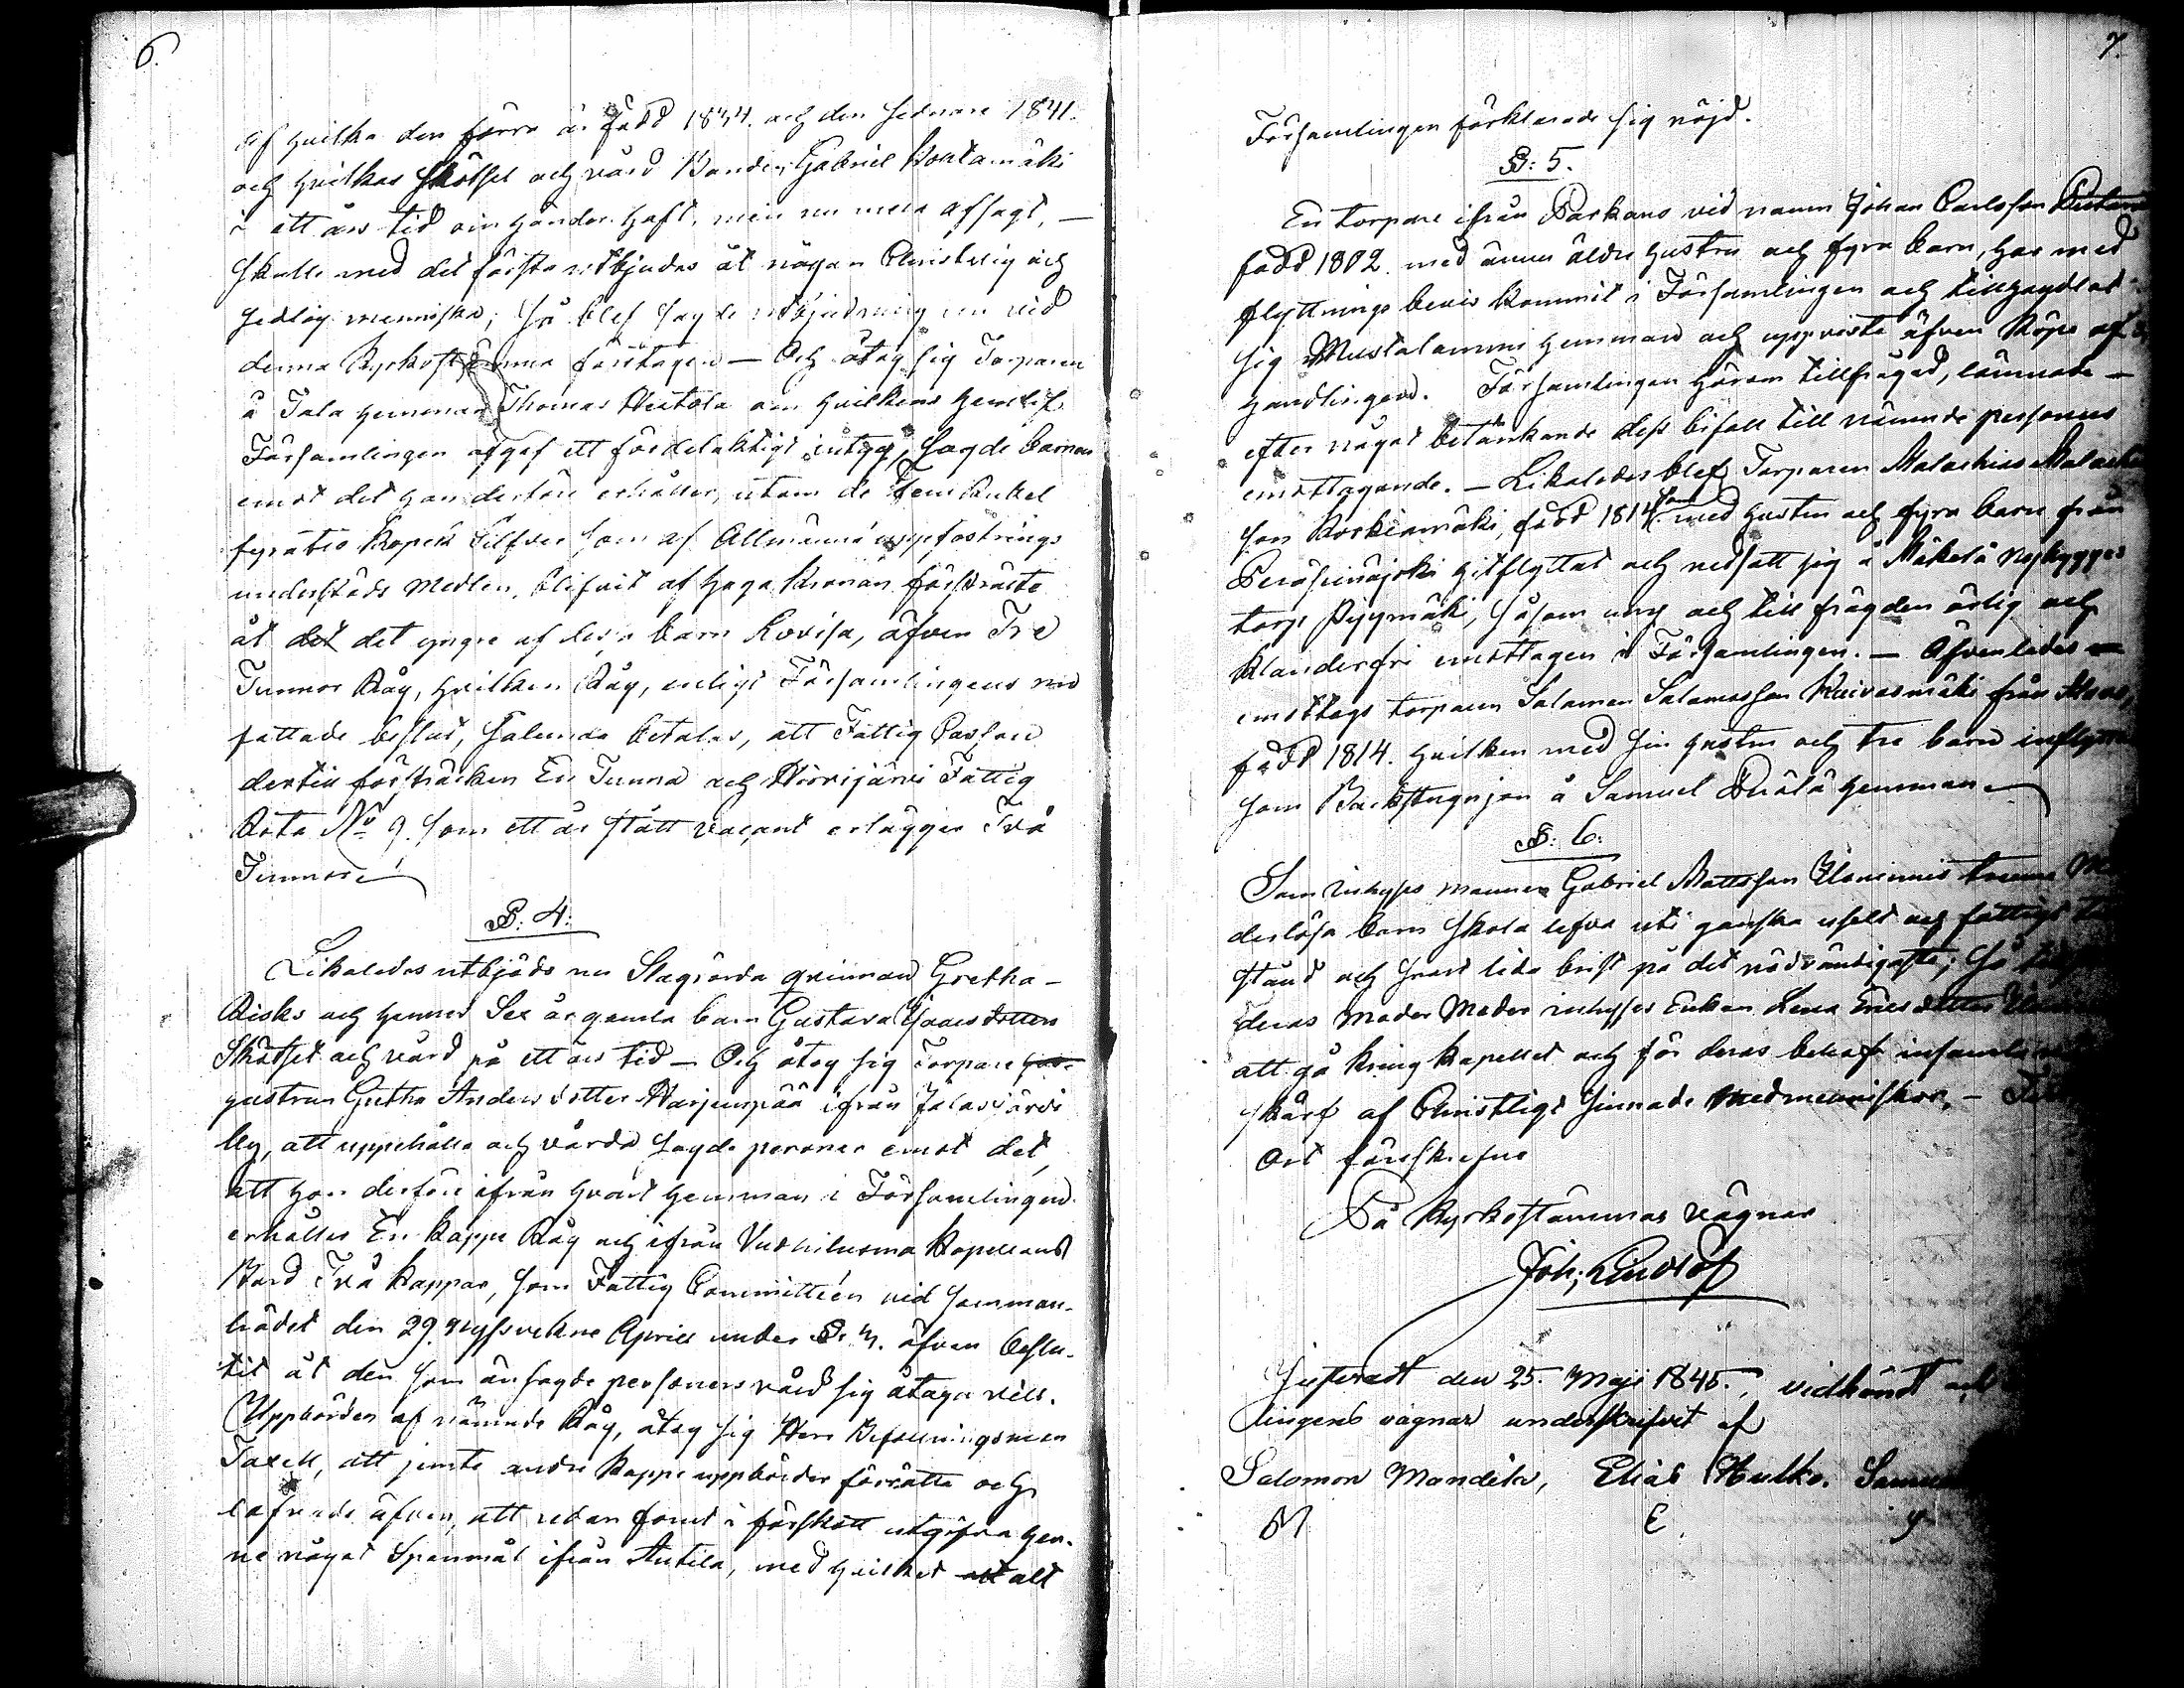 6.
af hvilka den förra är född 1834. och den sednare 1841.
och hvilkas skötsel och vård Bonden Gabriel Koktamäki
i ett års tid om händer haft, men nu mera afsagt, —
skulle med det första utbjudas åt någon Christelig och
sedlig menniska; så blef sagde utbjudning nu vid
denna Kyrkostämma företagen — Och åtog sig Torparen
å Jala hemman Thomas Hietola om hvilkens hemlif
Församlingen afgaf ett fördelaktigt intyg, sagde barnen
emot det han derföre erhåller, utom de fem Rubel
fyratio Kopek Silfver som af Allmänna uppfostrings
understöds medlen, blifvit af Höga Kronan försträckte
åt det det yngre af dessa barn Lovisa, äfven Tre
Tunnor Råg, hvilken Råg, enligt Församlingens nu
fattade beslut, sålunda betalas, att Fattig Cassan
dertill försträcker En Tunna och Hirvijärvi Fattig
Rota No 9. som ett år stått vacant erlägger Två
Tunnor.
§: 4:
Likaledes utbjöds nu Slagrörda qvinnan Gretha
Risks och hennes Sex år gamla barn Gustava Isaacsdotters
Skötsel och vård på ett års tid — Och åtog sig Torpare
hustrun Gretha Andersdotter Harjunpää ifrån Jalasjärvi
by, att uppehålla och vårda sagde personer emot det,
att hon derföre ifrån hvart hemman i Församlingen
erhåller En kappe Råg och ifrån Kapellans
Bord Två kappar, som Fattig Committéen vid samman-
trädet den 29. nyssvekne April under §: 3. äfven beslu-
tit åt den som ansagde personers vård sig åtaga vill.
Uppbörden af nämnde Råg, åtog sig Herr Befallningsman
Taxell, att jemte andre kappe uppbörder förrätta och
lofvade äfven, att redan förut i förskott utgifva hen-
ne något Spanmål ifrån Antila, med hvilket att allt
7.
Församlingen förklarade sig nöjd.
§: 5.
En torpare ifrån Parkano vid namn Johan Carlsson
född 1802. med ännu äldre hustru och fyra barn, har med
flyttnings bevis kommit i Församlingen och tillhandlat
sig Mustalammi hemman och uppviste äfven Köpe af-
handlingen. Församlingen härom tillfrågad, lämnade —
efter något betänkande dess bifall till nämnde persons
emottagande. — Likaledes blef Torparen Malachias
son Koskimäki, född 1814. som med hustru och fyra barn från
Peräseinäjoki hitflyttat och nedsatt sig å Mäkelä nybygges
torp Pyymäki, såsom ung och till frägden ärlig och
klanderfri emottagen i Församlingen. — Äfvenledes
emottogs torparen Salomon Salomonsson Kuivasmäki från
född 1814. hvilken med sin hustru och tre barn
som Backstugusjon å Samuel hemman
§: 6:
Som inhyses mannen Gabriel Mattsson
derlösa barn skola lefva uti ganska uselt och fattigt
stånd och svårt lida brist på det nödvändigaste; så
deras Moder Moder inhyses Enkan Lena Ericsdotter
att gå kring kapellet och för deras behof insamla
skärf af Christligt sinnade medmenniskor. —
Ort förskrefne
På Kyrkostämmas vägnar
Joh: Lindlöf
Justerat den 25. Maji 1845., vidkändt och
lingens vägnar underskrifvit af
Salomon Mandila, Elias Hulko. Samuel
M E.